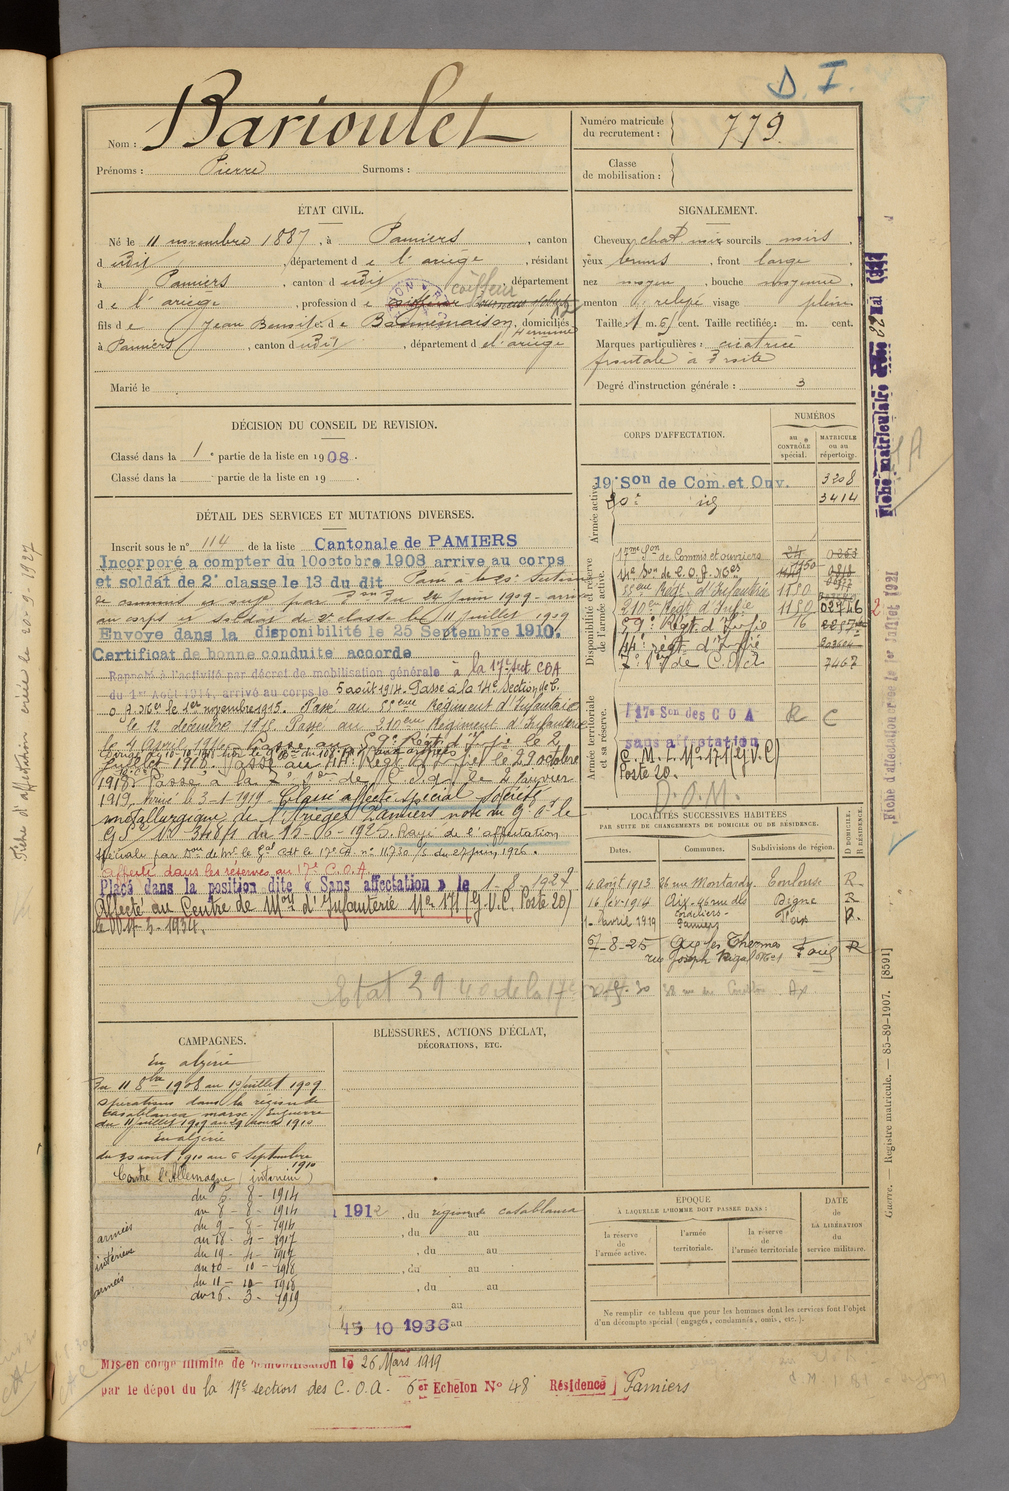 D. I.
Nom : Barioulet
Prénoms : Pierre Surnoms :
Numéro matricule du recrutement : 779
Classe de mobilisation :
ÉTAT CIVIL.
Né le 11 novembre 1887, à Pamiers, canton
d udit, département de l'ariège, résidant
à Pamiers, canton d udit, département
de l'ariège, profession de coiffeur
fils de Jean Benoit et de, domiciliés
à Pamiers, canton d udit, département de l'ariège
Marié le
SIGNALEMENT.
Cheveux chat. noir sourcils noirs
yeux bruns, front large
nez moyen, bouche moyenne
menton relepé visage plein
Taille : 1 m. 61 cent. Taille rectifiée : m. cent.
Marques particulières : cicatrice
frontale à droite
Degré d'instruction générale : 3
DÉCISION DU CONSEIL DE REVISION.
Classé dans la 1e partie de la liste en 1908.
Classé dans la partie de la liste en 19
DÉTAIL DES SERVICES ET MUTATIONS DIVERSES.
Inscrit sous le n° 114 de la liste Cantonale de PAMIERS
Incorporé a compter du 10 octobre 1908 arrive au corps
et soldat de 2e classe le 13 du dit Passé à la 20e Section
de commis et ouv. par du 24 juin 1909 - arrivé
au corps et soldat de 2e classe le 11 juillet 1909
Envoye dans la disponibilité le 25 Septembre 1910.
Certificat de bonne conduite accorde
Rappelé à l'activité par décret de mobilisation générale à la 17e Sect COA
du 1er Août 1914, arrivé au corps le 5 août 1914. Passé à la 14e Section de C.
O. A. le 1er novembre 1915. Passé au 55eme Régiment d'Infanterie
le 12 décembre 1915. Passé au 210eme Régiment d'Infanterie
le 4 Avril 1916. Passé au 59e Régt d'Inf ie le 2
Juillet 1918. Passé au 14e Régt d'Inf le 29 octobre
1918. Passé à la 7e Son de C.O.A. le 2 Janvier
1919, le 3-1-1919 Classé affecté spécial Société
métallurgique de l'Ariège Pamiers note du Gal le
G.S. No 348/1 du 15-06-1925. Rayé de l'affectation
spéciale par Don de Mr le Gal Cdt le 17e CA n° 11730 /5 du 27 juin 1926.
Affecté dans les réserves au 17e C.O.A.
Placé dans la position dite « Sans affectation » le 1-8-1927
Affecté au Centre de Mon d'Infanterie No 171 (G.V.C. Poste 20)
le 1-3-1934.
Etat 39 40 de la 17e
CORPS D'AFFECTATION.
NUMÉROS
au CONTRÔLE spécial.
MATRICULE ou au répertoire.
Armée active.
19e Son de Com. et Ouv. 3208
20e id 3414
Disponibilité et réserve de l'armée active.
17me Son de Commis et ouvriers 24 0263
14e Son de C.O.A.
55eme Régt d'Infanterie 1150
210eme Régt d'Infie 1180 02746
59e Régt d'Infie 16
14e régt d'Infie
7e Son de C.O.A. 7467
Armée territoriale et sa réserve.
17e Son des C O A R C
sans affectation
C. M. I. No 171 (G.V.C)
Poste 20.
D.O.M.
LOCALITÉS SUCCESSIVES HABITÉES
PAR SUITE DE CHANGEMENTS DE DOMICILE OU DE RÉSIDENCE.
Dates. Communes. Subdivisions de région. D DOMICILE. R RÉSIDENCE.
4 Août 1913 26 rue Montardy Toulouse R
16 fév-1914 Aix-46 rue des Cordeliers Digne R
1 Avril 1919 Pamiers Foix R.
7-8-25 Ax les Thermes rue Joseph Rigal Foix R
CAMPAGNES.
En algérie
du 11 8bre 1908 au 10 juillet 1909
opérations dans la région de
Casablanca maroc. En guerre
du 11 juillet 1909 au 29 aout 1910
En algérie
du 30 aout 1910 au 6 Septembre
1910
Contre l'Allemagne (intérieur)
du 5 - 8 - 1914
au 8 - 8 - 1916
armées du 9 - 8 - 1916
au 18 - 4 - 1917
intérieur du 19 - 4 - 1917
au 10 - 10 - 1918
armées du 11 - 10 - 1918
au 26 - 3 - 1919
BLESSURES, ACTIONS D'ÉCLAT,
DÉCORATIONS, ETC.
1912, du région de casablanca
, du au
, du au
, du au
, du au
au
15 10 1936 au
ÉPOQUE
À LAQUELLE L'HOMME DOIT PASSER DANS :
la réserve de l'armée active.
l'armée territoriale.
la réserve de l'armée territoriale
DATE de LA LIBÉRATION du service militaire.
Ne remplir ce tableau que pour les hommes dont les services font l'objet
d'un décompte spécial (engagés, condamnés, omis, etc.).
Mis en congé illimité de démobilisation le 26 Mars 1919
par le dépot du la 17e sections des C.O.A. 6er Echelon No 48 Résidence Pamiers
Fiche matriculaire 22 Mai
Fiche d'affectation créée le 1er Juillet 1921
Guerre. — Registre matricule. — 85-89-1907. [8591]
Fiche d'affection créée le 20-9-1927